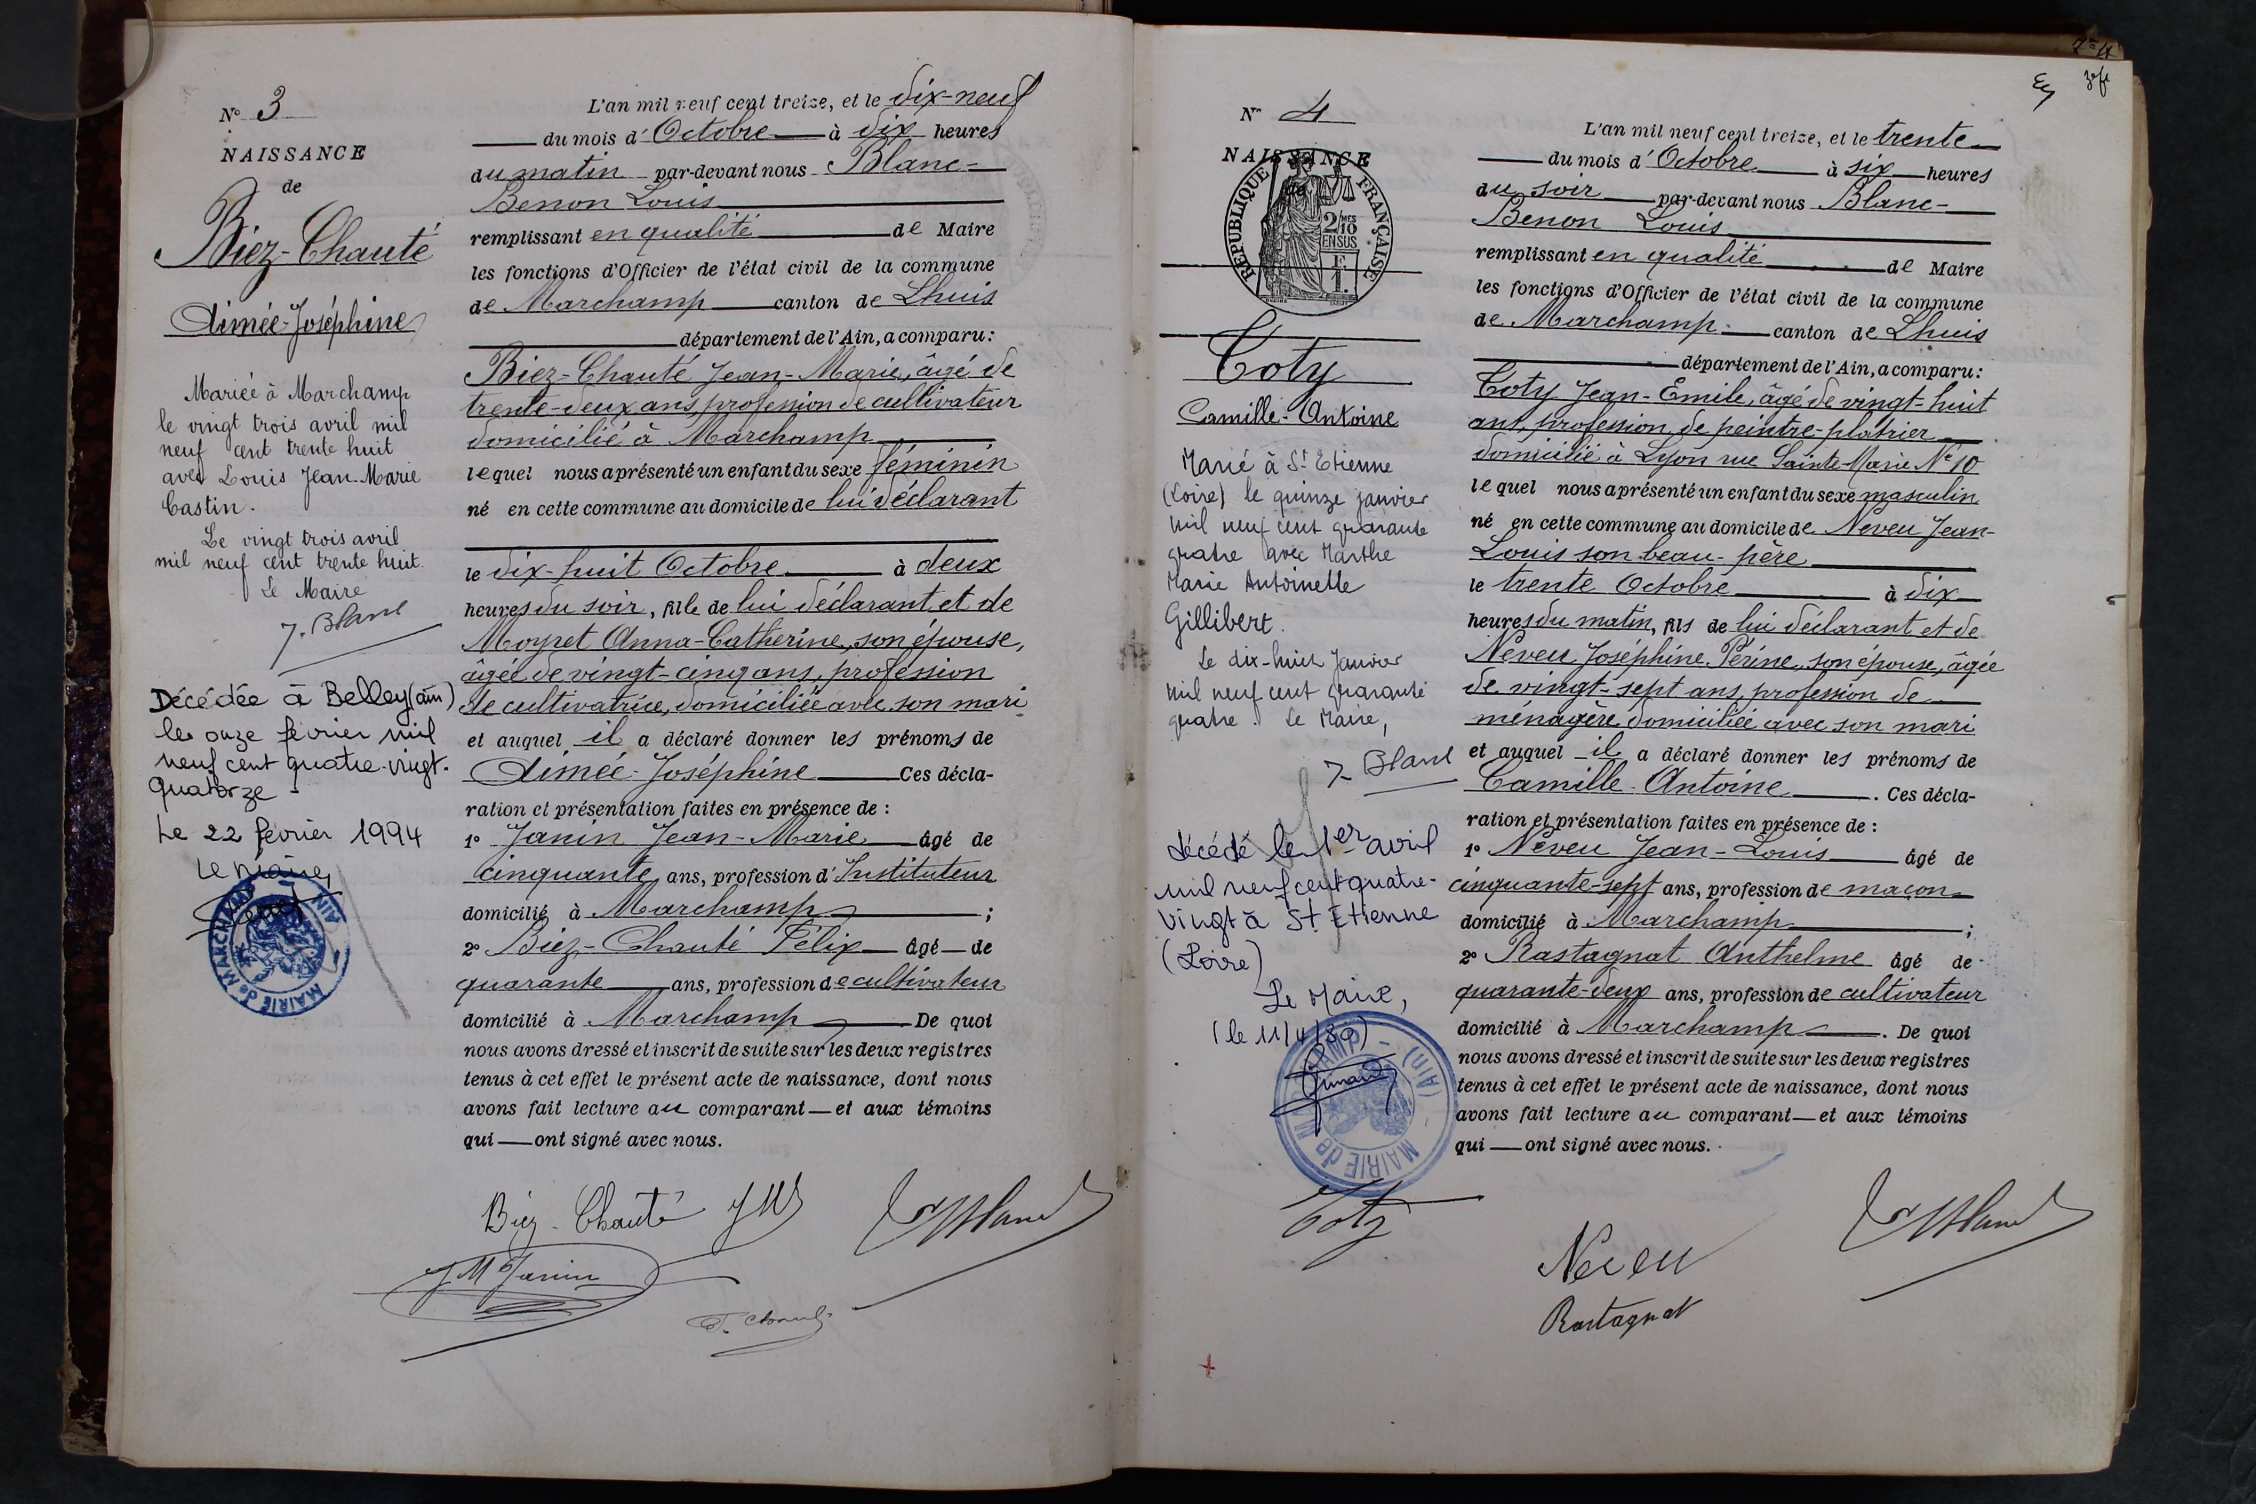 N° 3
NAISSANCE
de
Biez-Chauté
Aimée-Joséphine
Mariée à Marchamp
le vingt trois avril mil
neuf cent trente huit
avec Louis Jean-Marie
Castin.
Le vingt trois avril
mil neuf cent trente huit.
Le Maire
J. Blanc
Décédée à Belley (ain)
le onze février mil
neuf cent quatre-vingt-
quatorze -
Le 22 février 1994
Le Maire,
MAIRIE de MARCHAMP - AIN
L'an mil neuf cent treize, et le dix-neuf
du mois d'Octobre à dix heures
du matin par-devant nous Blanc-
Benon Louis
remplissant en qualité de Maire
les fonctions d'Officier de l'état civil de la commune
de Marchamp canton de Lhuis
département de l'Ain, a comparu:
Biez-Chauté Jean-Marie, âgé de
trente-deux ans, profession de cultivateur
domicilié à Marchamp
lequel nous a présenté un enfant du sexe féminin
né en cette commune au domicile de lui déclarant
le dix-huit Octobre à deux
heures du soir, fille de lui déclarant et de
Moyret Anna-Catherine, son épouse,
âgée de vingt-cinq ans, profession
de cultivatrice, domiciliée avec son mari
et auquel il a déclaré donner les prénoms de
Aimée-Joséphine Ces décla-
ration et présentation faites en présence de :
1° Janin Jean-Marie âgé de
cinquante ans, profession d'Instituteur
domicilié à Marchamp ;
2° Biez-Chauté Félix âgé de
quarante ans, profession de cultivateur
domicilié à Marchamp De quoi
nous avons dressé et inscrit de suite sur les deux registres
tenus à cet effet le présent acte de naissance, dont nous
avons fait lecture au comparant et aux témoins
qui ont signé avec nous.
Biez-Chauté JM
JM Janin
N° 4
NAISSANCE
de
RÉPUBLIQUE FRANÇAISE
2/10
MES
EN SUS
Coty
Camille-Antoine
Marié à St Etienne
(Loire) le quinze janvier
mil neuf cent quarante
quatre avec Marthe
Marie Antoinette
Gillibert.
Le dix-huit Janvier
mil neuf cent quarante
quatre. Le Maire,
J. Blanc
décédé le 1er avril
mil neuf cent quatre-
vingt à St Etienne
(Loire)
Le Maire,
(le 11/4/80)
MAIRIE de MARCHAMP - (AIN) -
L'an mil neuf cent treize, et le trente
du mois d'Octobre à six heures
du soir par-devant nous Blanc-
Benon Louis
remplissant en qualité de Maire
les fonctions d'Officier de l'état civil de la commune
de Marchamp canton de Lhuis
département de l'Ain, a comparu:
Coty Jean-Emile, âgé de vingt-huit
ans, profession de peintre-platrier
domicilié à Lyon rue Sainte-Marie N° 10
lequel nous a présenté un enfant du sexe masculin
né en cette commune au domicile de Neveu Jean-
Louis son beau-père
le trente Octobre à dix
heures du matin, fils de lui déclarant et de
Neveu Joséphine Périne, son épouse, âgée
de vingt-sept ans, profession de
ménagère domiciliée avec son mari
et auquel il a déclaré donner les prénoms de
Camille-Antoine . Ces décla-
ration et présentation faites en présence de :
1° Neveu Jean-Louis âgé de
cinquante-sept ans, profession de maçon
domicilié à Marchamp ;
2° Rastagnat Anthelme âgé de
quarante-deux ans, profession de cultivateur
domicilié à Marchamp . De quoi
nous avons dressé et inscrit de suite sur les deux registres
tenus à cet effet le présent acte de naissance, dont nous
avons fait lecture au comparant et aux témoins
qui ont signé avec nous.
Coty
Neveu
Rastagnat